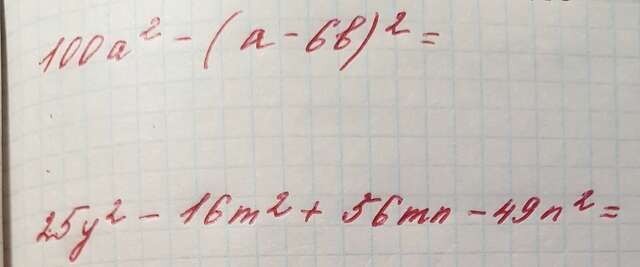 100a² - (a - 6b)² =
25y² - 16m² + 56mn - 49n² =